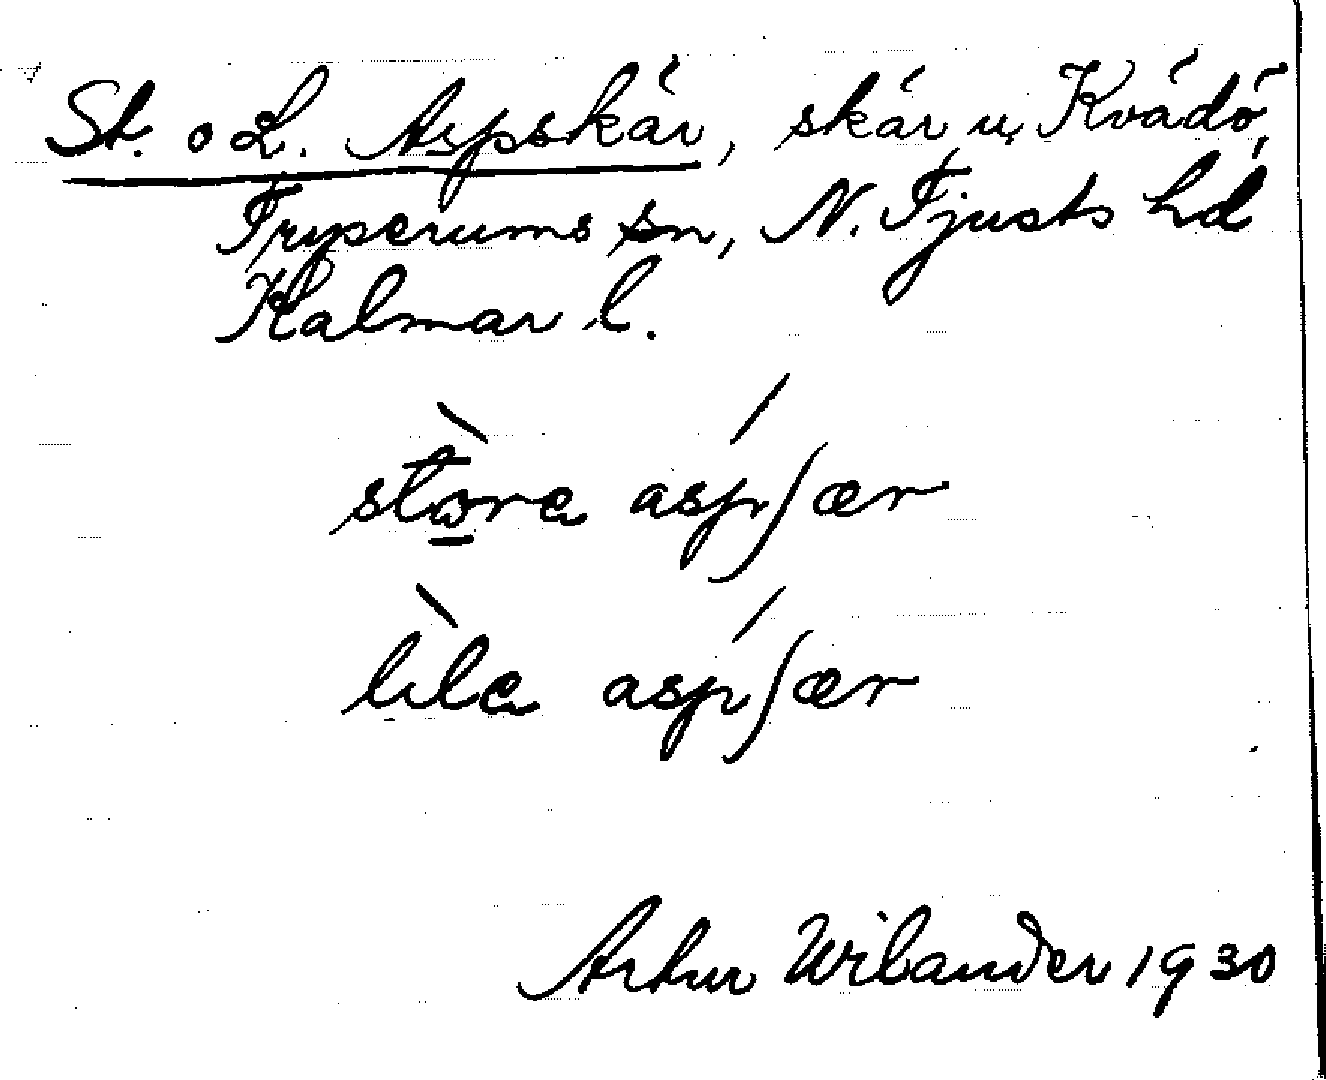 St. o L. Aspskär, skär u, Kvädö,
Tryserums sn, N. Tjusts hd
Kalmar l.
stòra áspʃær
lìla áspʃær
Artur Wilander 1930